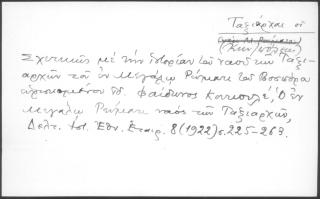 Ταξιάρχαι οἱ
(Κων/πόλεως)
Σχετικῶς μὲ τὴν ἱστορίαν τοῦ ναοῦ τῶν Ταξι-
αρχῶν τοῦ ἐν Μεγάλῳ Ρεύματι τοῦ Βοσπόρου
εὑρισκομένου ἰδ. Φαίδωνος Κουκουλέ, Ὁ ἐν
Μεγάλῳ Ρεύματι ναὸς τῶν Ταξιαρχῶν,
Δελτ. Ἱστ. Ἐθν. Ἑταιρ. 8 (1922) σ. 225-263.